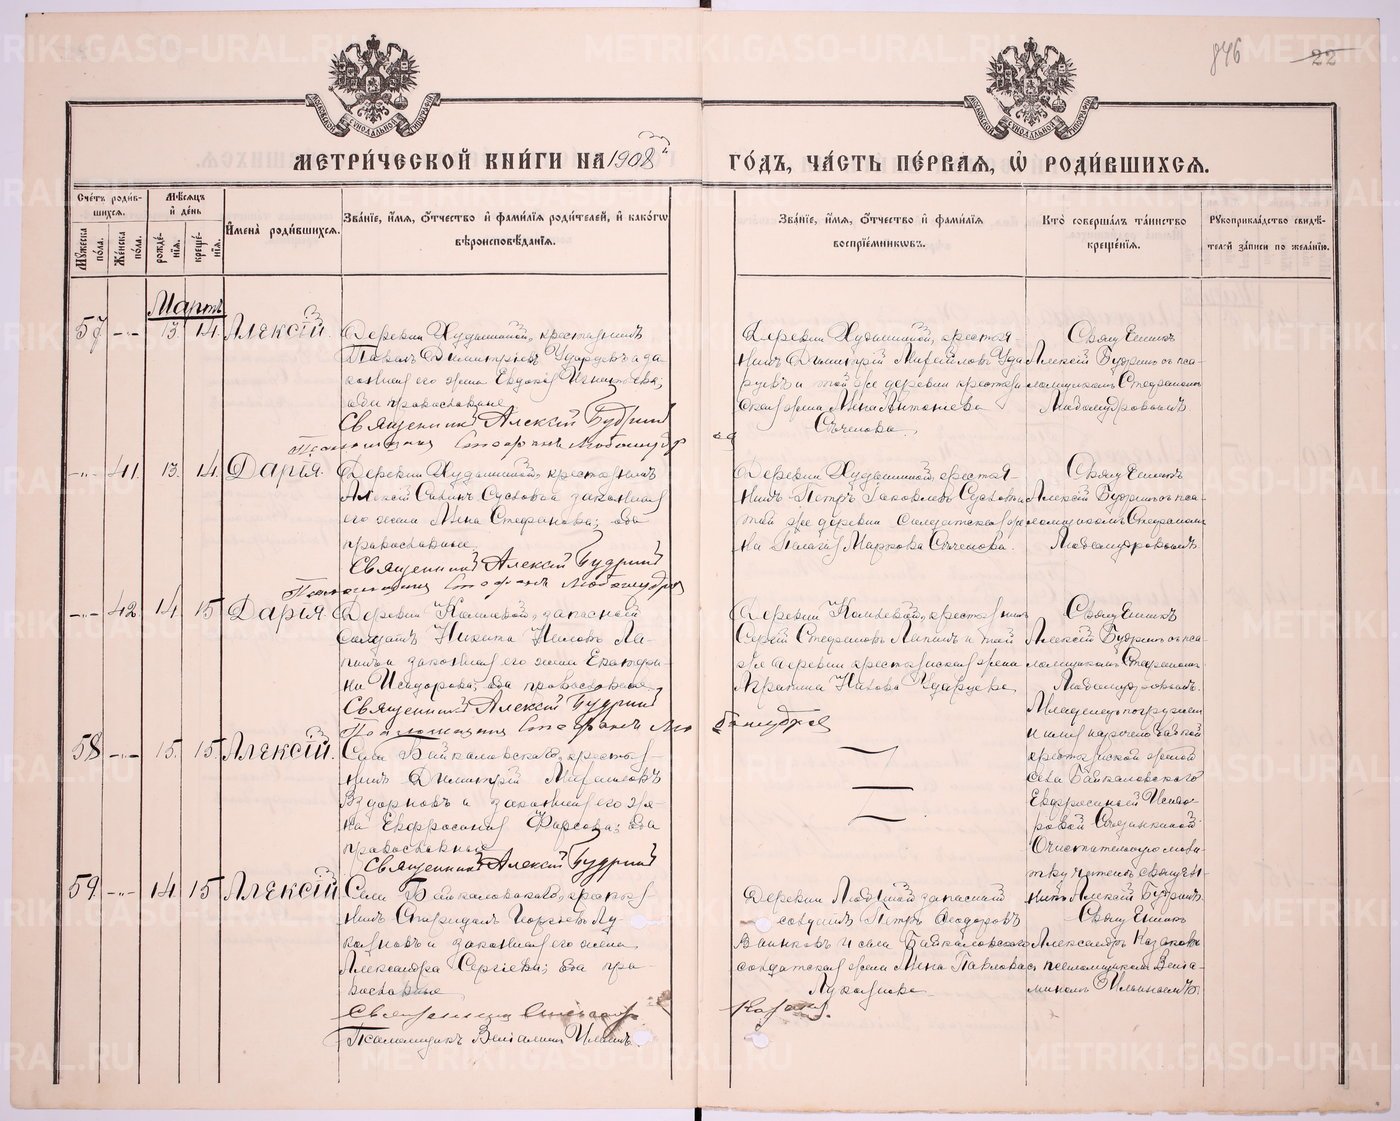 846 22
МЕТРИ́ЧЕСКОЙ КНИ́ГИ НА 1908й ГО́ДЪ, ЧА́СТЬ ПЕ́РВАЯ, Ѡ҆ РОДИ́ВШИХСЯ.
МОСКОВСКОЙ СѴНОДАЛЬНОЙ ТИПОГРАФІИ
МОСКОВСКОЙ СѴНОДАЛЬНОЙ ТИПОГРАФІИ
Сче́тъ роди́в-
шихся.
Му́жеска по́ла.
Же́нска по́ла.
Мѣ́сяцъ и҆ де́нь
рожде́-
нія.
креще́-
нія.
И҆мена̀ роди́вшихся.
Зва́ніе, и҆́мя, ѻ҆́тчество и҆ фами́лія роди́телей, и҆ како́гѡ
вѣроисповѣ́данія.
Зва́ніе, и҆́мя, ѻ҆́тчество и҆ фами́лія
воспріе́мникѡвъ.
Кто̀ соверша́лъ та́инство
креще́нія.
Рукоприкла́дство свидѣ́-
телей за́писи по жела́нію.
Мартъ
57 -"- 13. 14. Алексій.
Деревни Худышиной, крестьянинъ
Павелъ Димитріевъ Ударцевъ и за-
конная его жена Евдокія Игнатьева;
оба православные
Священникъ Алексій Будринъ
Псаломщикъ Стефанъ Любомудровъ
Деревни Худышиной, крестья-
нинъ Димитрій Михайловъ Уда-
рцевъ и той же деревни крестьян-
ская жена Анна Антоніева
Священникъ
Алексій Будринъ съ пса-
ломщикомъ Стефаномъ
Любомудровымъ
-"- 41. 13. 14. Дарія.
Деревни Худышиной, крестьянинъ
законная
его жена Анна Стефанова; оба
православные
Священникъ Алексій Будринъ
Псаломщикъ Стефанъ Любомудровъ
Деревни Худышиной, крестья-
нинъ Петръ Іаковлевъ
той же деревни солдатская же-
на Маркова
Священникъ
Алексій Будринъ съ пса-
ломщикомъ Стефаномъ
Любомудровымъ
-"- 42 14. 15 Дарія.
Деревни запасной
солдатъ Никита Ла-
пинъ и законная его жена Екатери-
на Исидорова; оба православные
Священникъ Алексій Будринъ
Псаломщикъ Стефанъ Любомудровъ
Деревни крестьянинъ
Сергій Стефановъ Лапинъ и той
же деревни крестьянская жена
Ударцева
Священникъ
Алексій Будринъ съ пса-
ломщикомъ Стефаномъ
Любомудровымъ.
58 -"- 15. 15. Алексій.
Села Байкаловскаго, крестья-
нинъ Димитрій
Вздорновъ и законная его же-
на Евфросинія оба
православные
Священникъ Алексій Будринъ
Младенецъ погруженъ
и имя наречено бабкой
крестьянской женой
села Байкаловскаго
Евфросиніей Исидо-
ровой
Очистительную моли-
тву читалъ священ-
никъ Алексій Будринъ
59 -"- 14. 15 Алексій
Села Байкаловскаго, крестья-
нинъ Спиридонъ Георгіевъ Лу-
кояновъ и законная его жена
Александра Сергіева; оба пра-
вославные
Священникъ
Псаломщикъ Веніаминъ Ильинъ
Деревни запасной
солдатъ Петръ Ѳеодоровъ
и села Байкаловскаго
солдатская жена Анна Павлова
Лукоянова
Священникъ
Александръ Казаковъ
съ псаломщикомъ Веніа-
миномъ Ильинымъ.